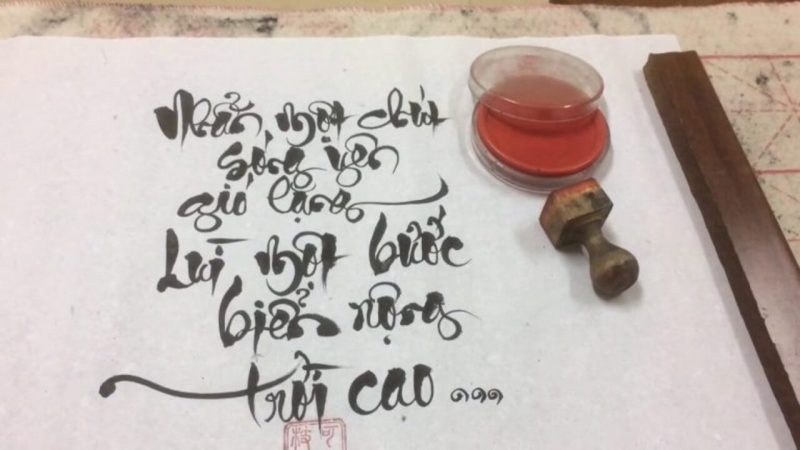 Nhẫn một chút
sóng yên
gió lặng
Lùi một bước
biển rộng
trời cao ...